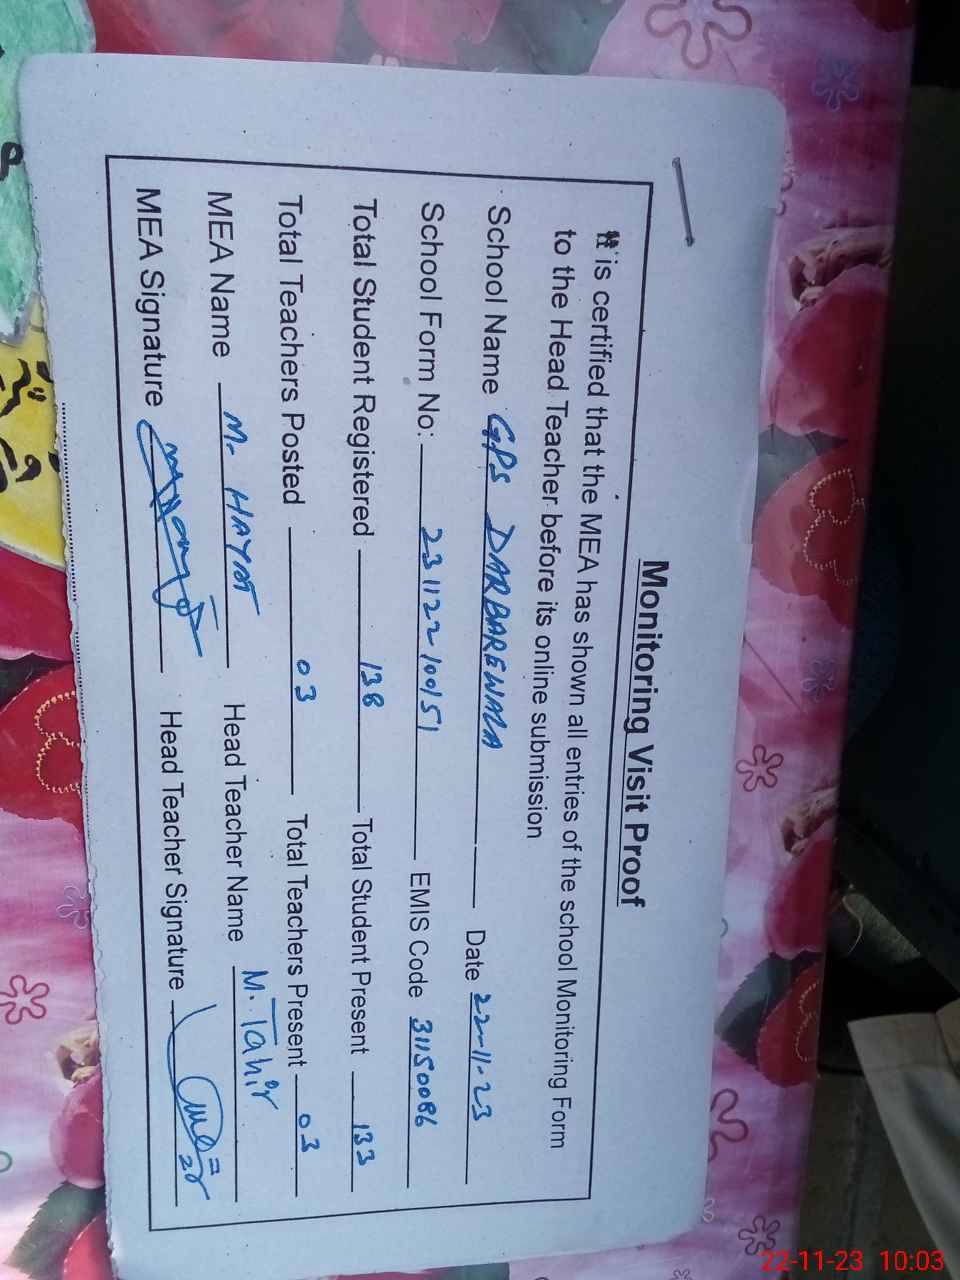 Monitoring Visit Proof
It is certified that the MEA has shown all entries of the school Monitoring Form
to the Head Teacher before its online submission
School Name GPS DARBAREWALA Date 22-11-23
School Form No: 23112210015 1 EMIS Code 31150086
Total Student Registered 138 Total Student Present 133
Total Teachers Posted 03 Total Teachers Present 03
MEA Name M. HAYAT Head Teacher Name M. Tahir
MEA Signature Head Teacher Signature
22-11-23 10:03